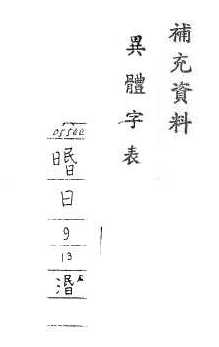 補充資料
異體字表
日
9
13
湣